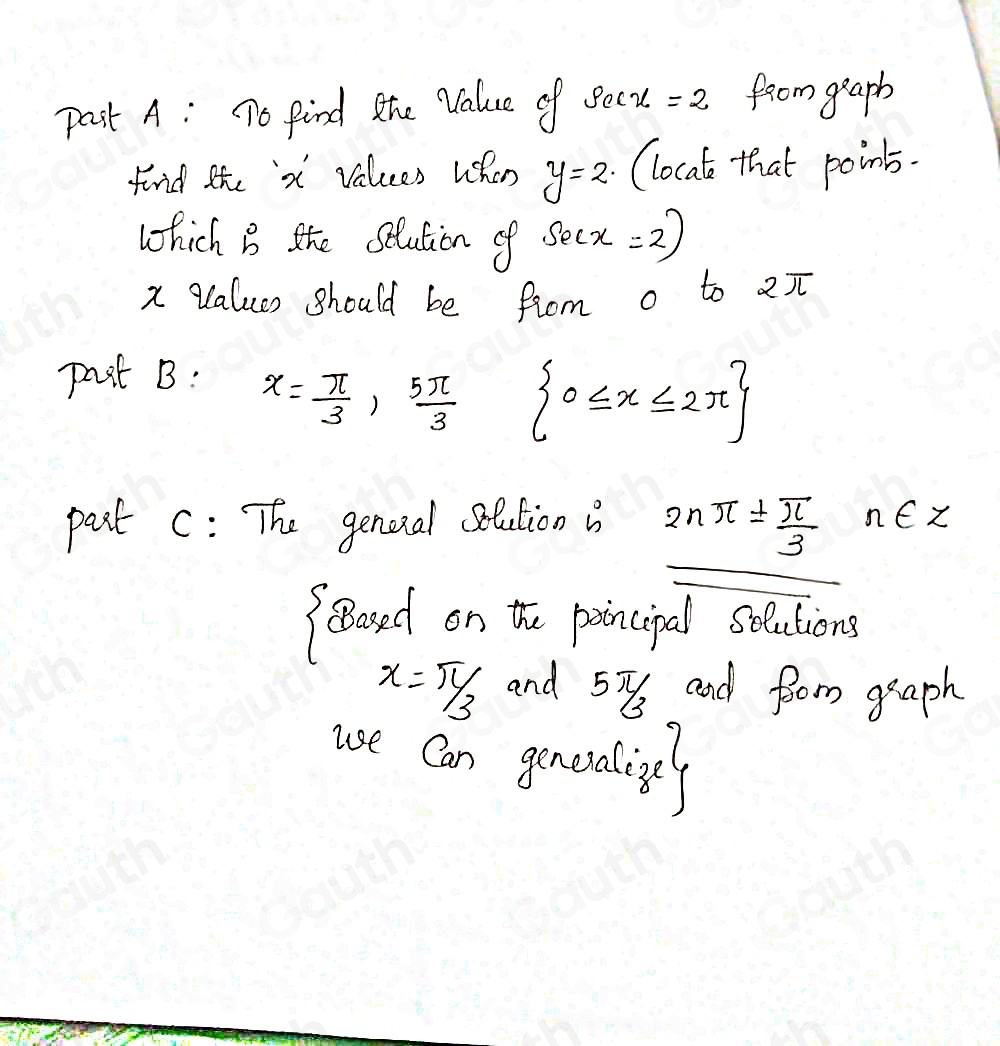 part A : To find the Value of Secx = 2 from graph
find the 'x' values when y=2. (locate that points.
which is the solution of Secx = 2)
x values should be from 0 to 2π
part B : x = π/3 , 5π/3 {0 ≤ x ≤ 2π}
part C : The general solution is 2nπ ± π/3 n ∈ z
{Based on the principal solutions
x = π/3 and 5π/3 and from graph
we can generalize}